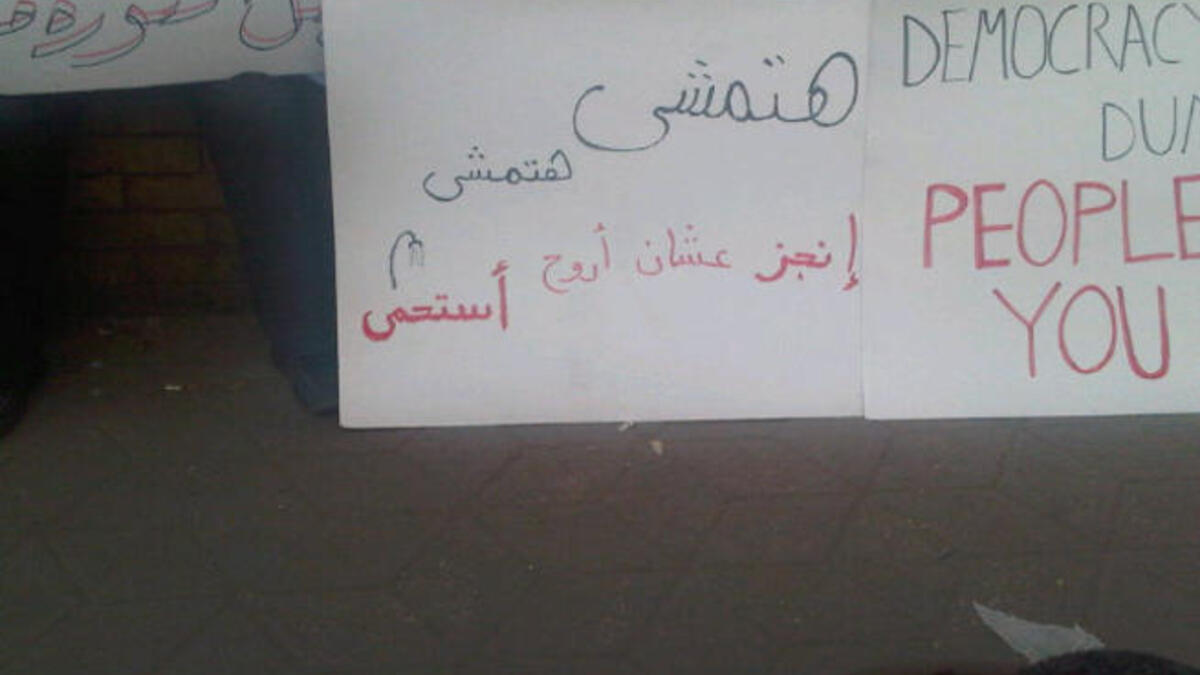 هتمشى
هتمشى
إنجز عشان أروح
أستحمى
DEMOCRACY
PEOPLE
YOU